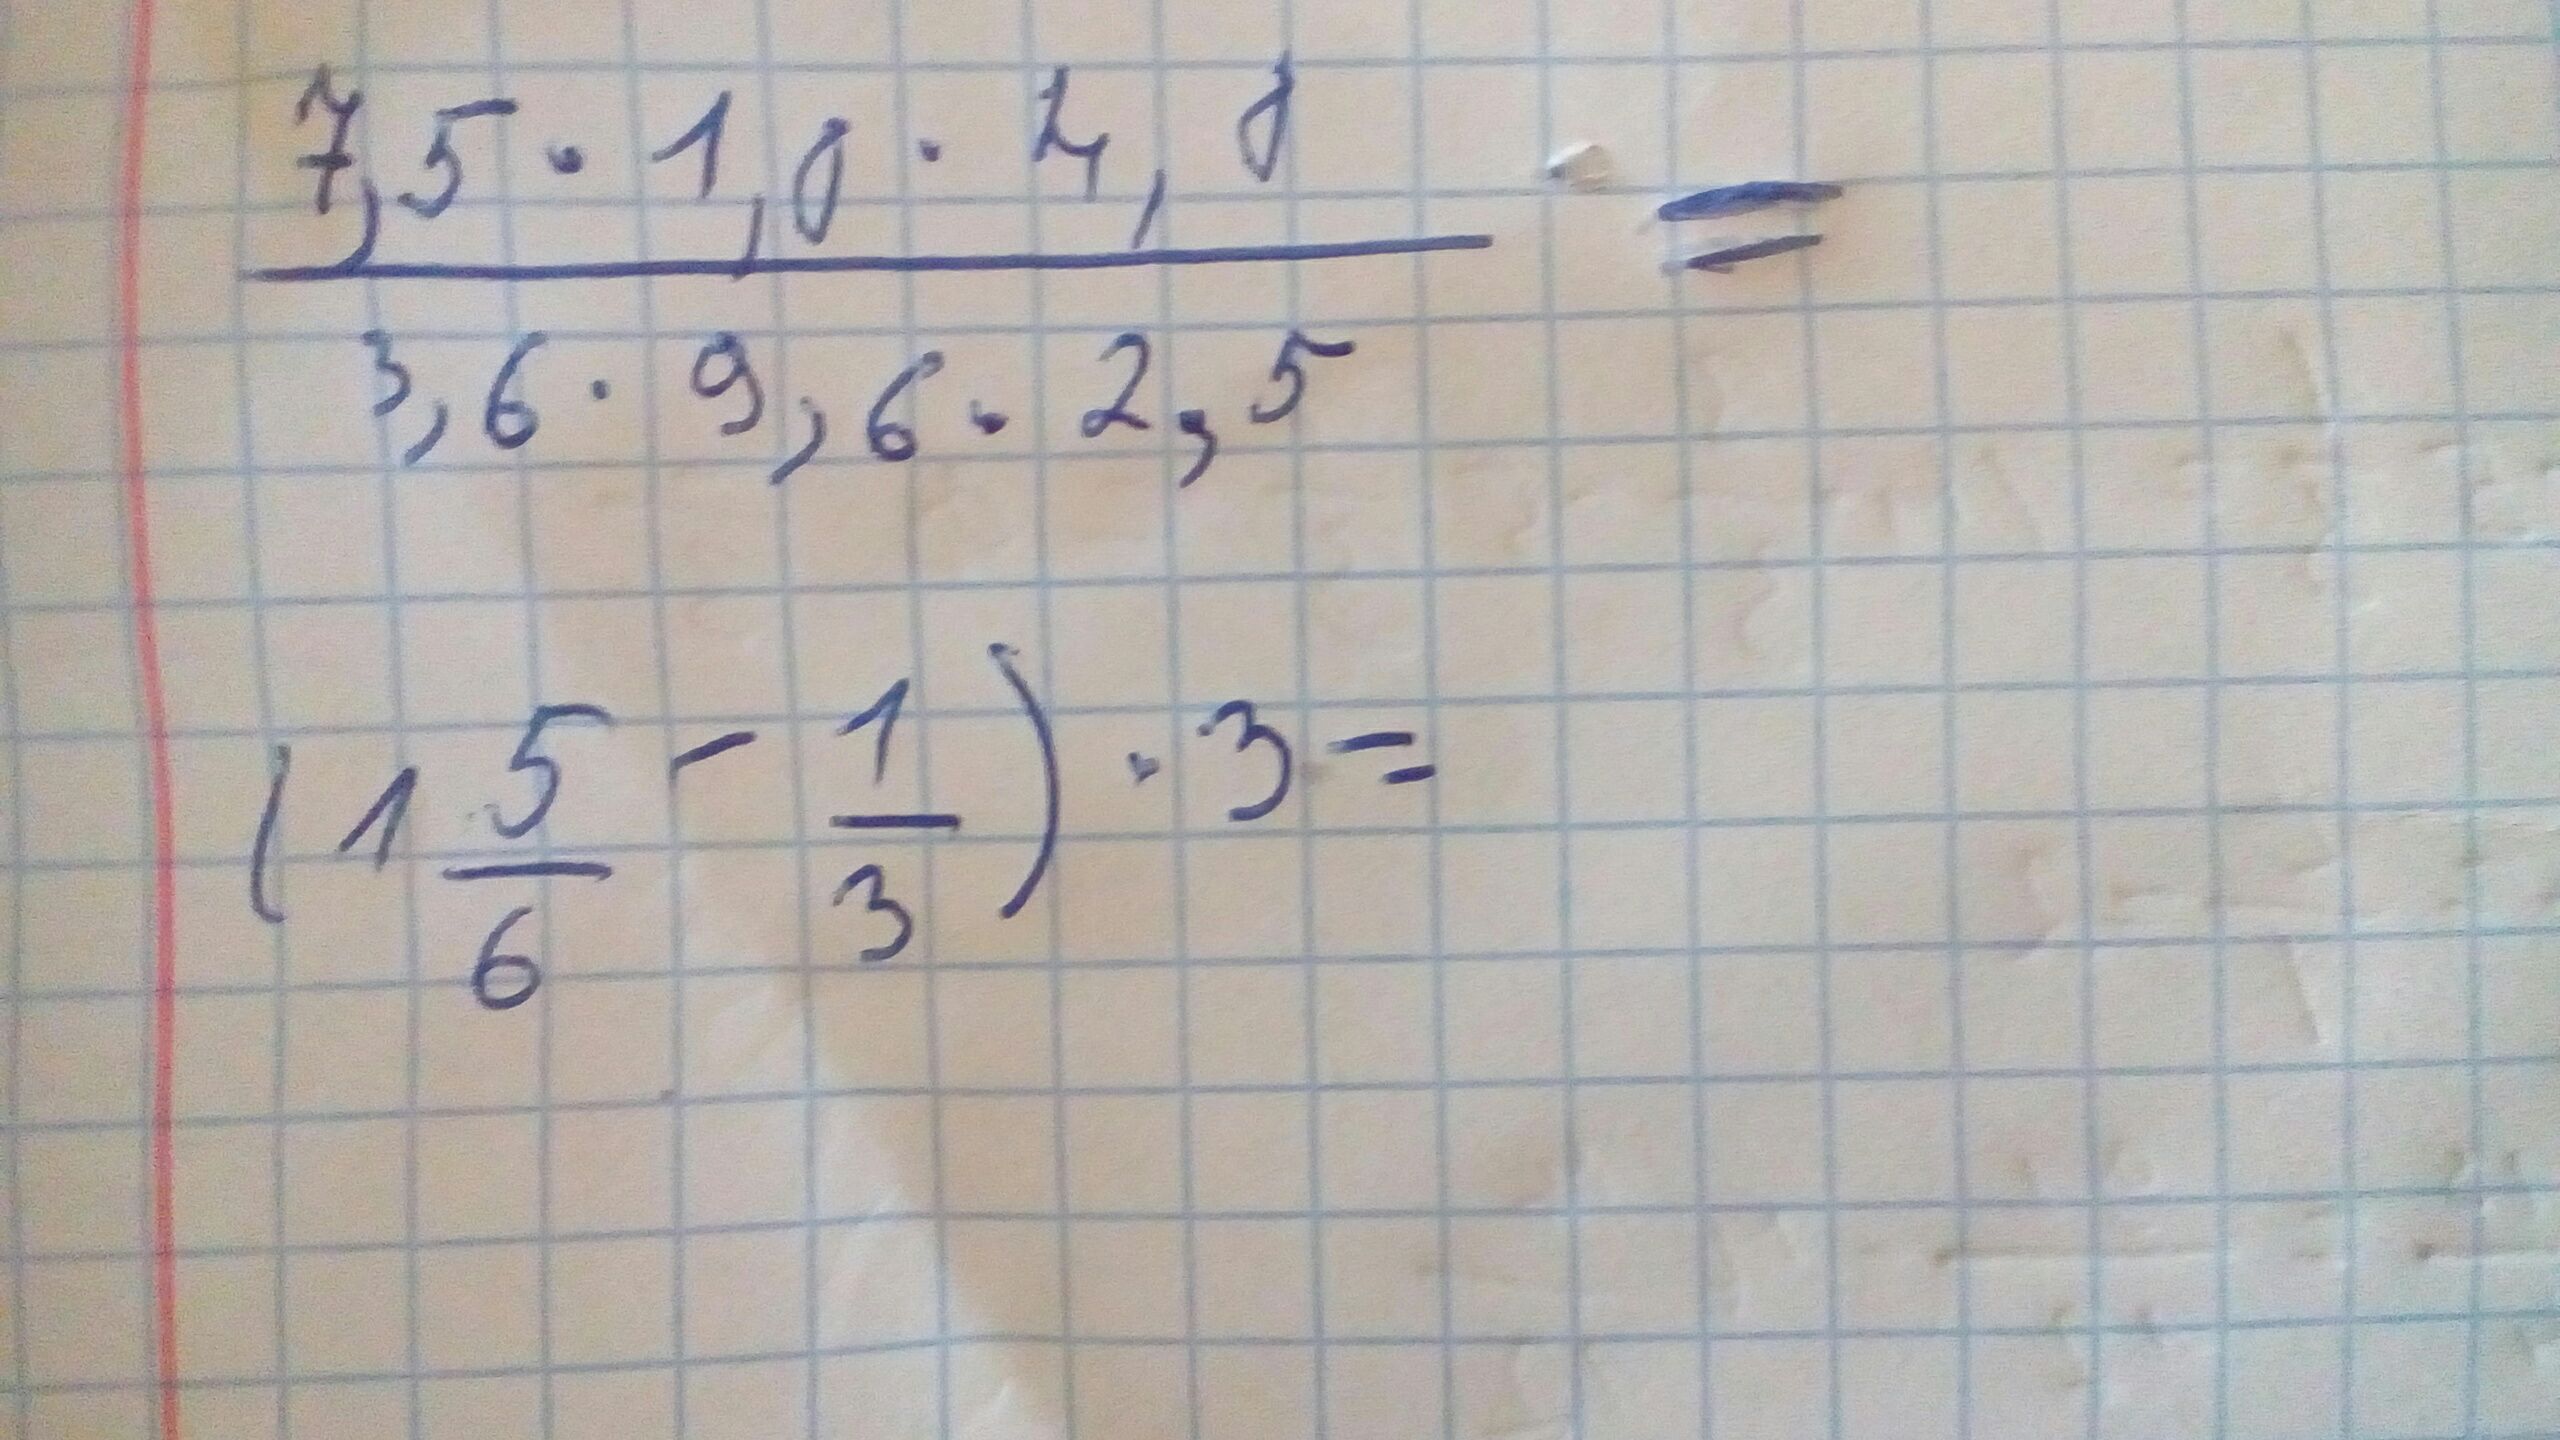 7,5 · 1,8 · 4,8
3,6 · 9,6 · 2,5 =
(1 5/6 - 1/3) · 3 =